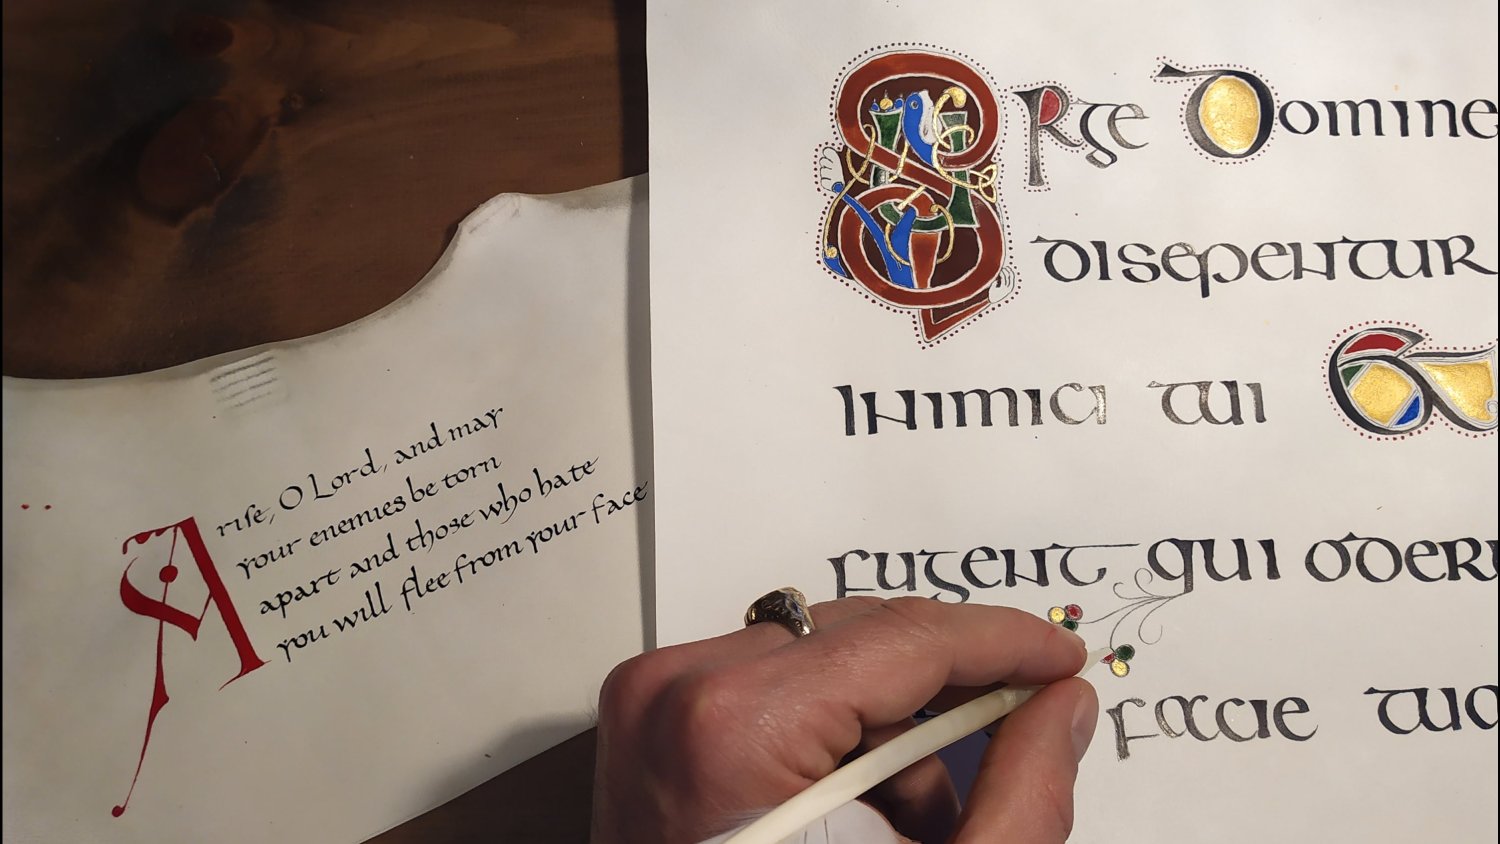 Arise, O Lord, and may
your enemies be torn
apart and those who hate
you will flee from your face
Surge Domine
disepentur
inimici tui Et
fugent qui oder
facie tua